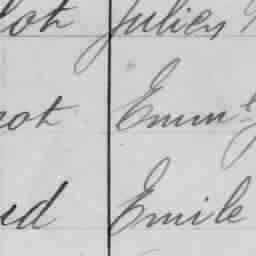 lot Julien
cot Emm
ud Emile